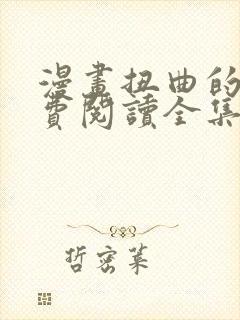 漫畫扭曲的
費閱讀全集
哲密萊